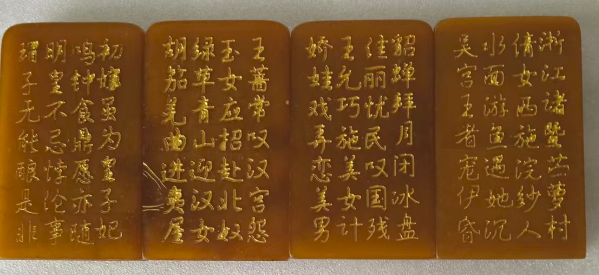 浙江诸暨苎萝村
倩女西施浣纱人
水面游鱼遇她沉
吴宫王者宠伊昏
貂蝉拜月闭冰盘
佳丽忧民叹国残
王允巧施美女计
娇娃戏弄恋美男
王蔷常叹汉宫怨
玉女应招赴北奴
绿草青山迎汉女
胡笳羌曲进夷庐
初嫁虽为皇子妃
鸣钟食鼎愿亦随
明皇不忌悖沦事
瑁子无能酿是非